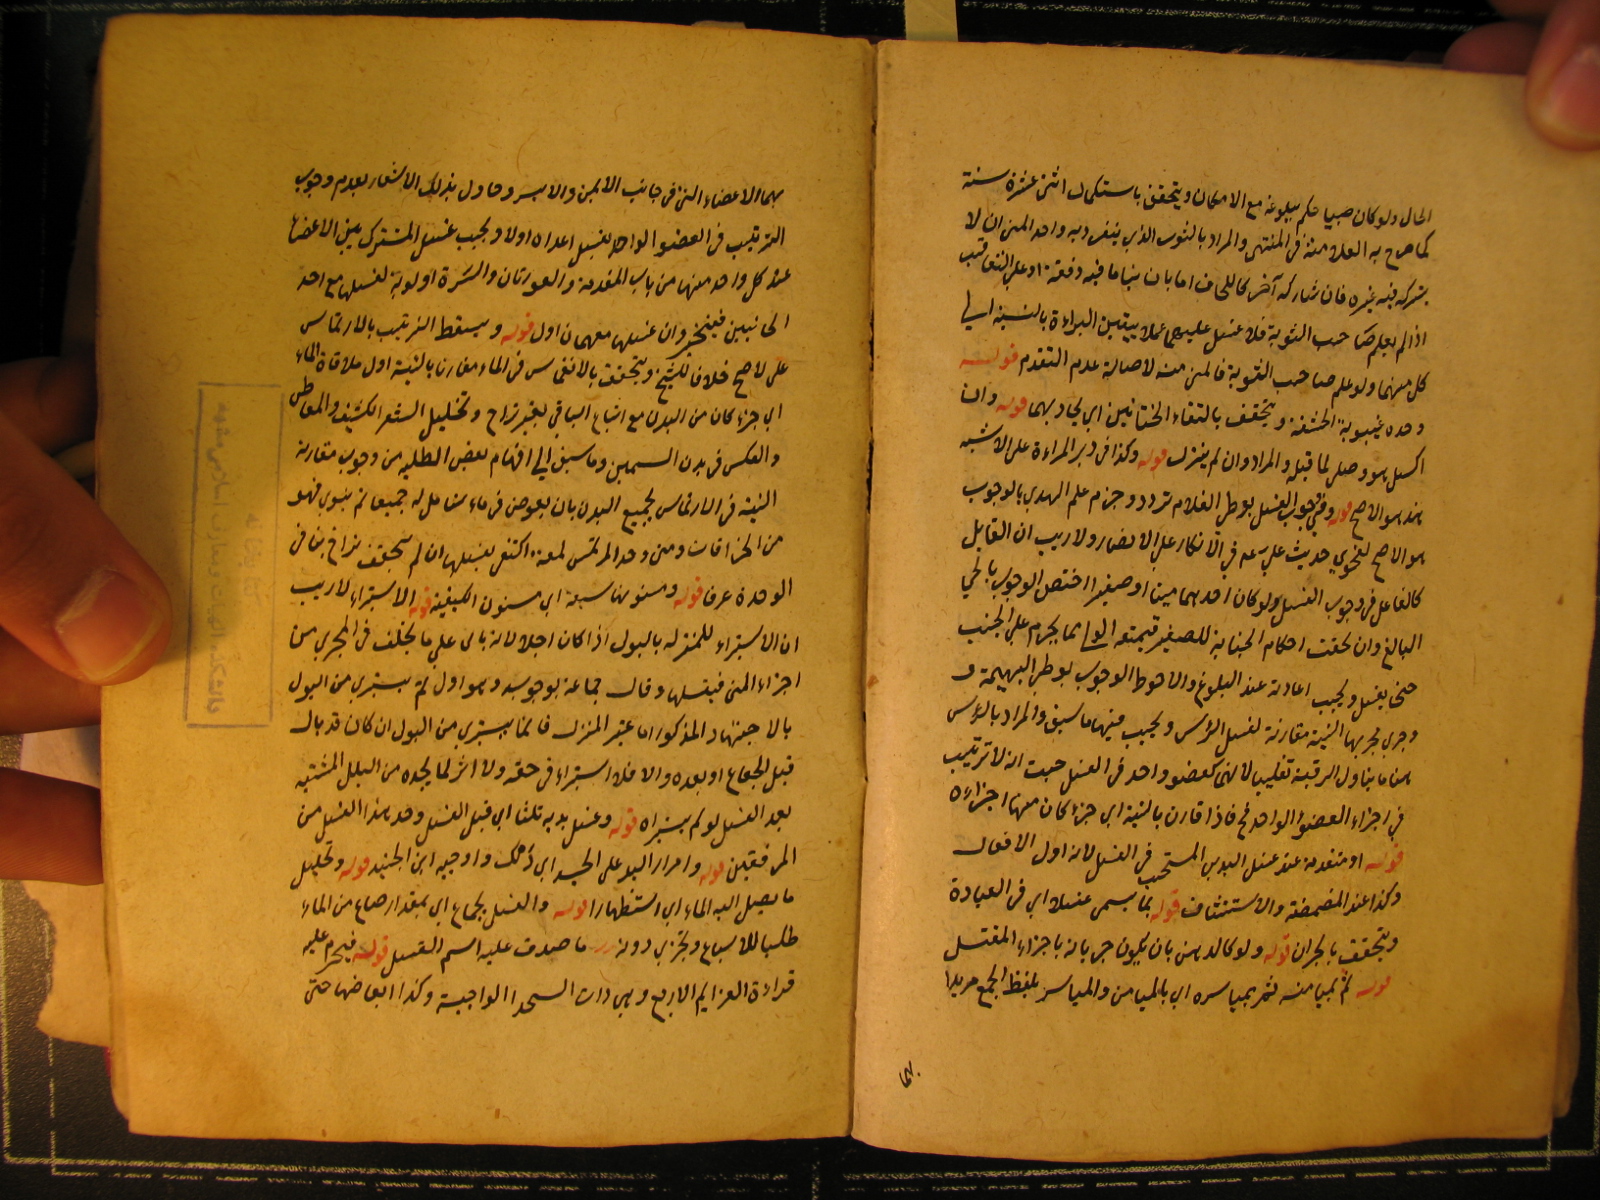 الحال ولو كان صبيا حكم ببلوغه مع الامكان ويتحقق باستكمال اثنتى عشرة سنة
كما صرح به العلامة فى المنتهى والمراد بالثوب الذي ينفرد به واحد المنى ان لا
يشركه فيه غيره فان شاركه آخر كاللحاف اما بان يناما فيه دفعة او على التعاقب
اذا لم يعلم صاحب النوبة فلا غسل عليهما عملا بيقين البراءة بالنسبة الى
كل منهما ولو علم صاحب النوبة فالمنى منه لاصالة عدم التقدم قوله
وحده غيبوبة الحشفة ويتحقق بالتقاء الختانين اي تحاذيهما قوله وان
اكسل هو وصلى لما قبله والمراد وان لم ينزل قوله وكذا فى دبر المراءة على الاشبه
هذا هو الاصح قوله وفى وجوب الغسل بوطى الغلام تردد وجزم علم الهدى بالوجوب
هو الاصح لفحوي حديث علي ع في الانكار على الانصار ولا ريب ان القابل
كالفاعل فى وجوب الغسل ولو كان احدهما ميتا او صغيرا اختص الوجوب بالحي
البالغ وان لحقت احكام الجنابة للصغير فيمنعه الولي مما يحرم على الجنب
حتى يغسل ويجب اعادته عند البلوغ والاحوط الوجوب بوطى البهيمة
وجرى مجريها النية مقارنة لغسل الرؤس ويجب فيها ما سبق والمراد بالرؤس
هنا ما يتناول الرقبة تغليبا لانهما كعضو واحد فى الغسل حيث انه لا ترتيب
في اجزاء العضو الواحد فح فاذا قارن بالنية اي جزء كان منها اجزاءه
قوله او متقدمة عند غسل اليدين المستحب فى الغسل لانه اول الافعال
وكذا عند المضمضة والاستنشاق قوله بما يسمى غسلا اي فى العبادة
ويتحقق بالجريان قوله ولو كالدهن بان يكون جريانه باجزاء المغتسل
قوله ثم بميامنه ثم بمياسره اي بالميامن والمياسر بلفظ الجمع مريدا
بهما
بهما الاعضاء التى فى جانب الايمن والايسر وحاول بذلك الاشعار بعدم وجوب
الترتيب فى العضو الواحد لغسل اعلاه اولا ويجب غسل المشترك بين الاعضاء
عند كل واحد منها من باب المقدمة والعورتان والسرة اولوية لغسلها مع احد
الجانبين فيتخير وان غسلها معهما ن اولى قوله ويسقط الترتيب بالارتماس
على لاصح خلافا للشيخ ويتحقق بالانغماس فى الماء مقارنا بالنية اول ملاقاة الماء
اي جزء كان من البدن مع اتباع الباقي بغير تراخ وتخليل الشعر الكثيف والمعاطن
والعكس فى بدن السمين وما سبق الى افهام بعض الطلبة من وجوب مقارنة
النية فى الارتماس لجميع البدن بان يغوص فى ماء شامل له جميعا ثم ينوي فهو
من الخرافات ومتى وجد المرتمس لمعة اكتفى بغسلها ان لم يتحقق تراخ ينافى
الوحدة عرفا قوله ومسنونها سبعة اي مسنون الكيفية قوله الاستبراء لا ريب
ان الاستبراء للمنزل بالبول اذا كان اجلا لانه ياتى على ما تخلف فى المجرى من
اجزاء المنى فيغسلها وقال جماعة بوجوبه وهو اولى ثم يستبرى من البول
بالاجتهاد المذكور اما غير المنزل فانما يستبرى من البول ان كان قد بال
قبل الجماع او بعده والا فلا استبراء فى حقه ولا اثر لما يجده من البلل المشتبه
بعد الغسل لو لم يستبراه قوله وغسل يديه ثلثا اي قبل الغسل وحد هذا الغسل من
المرفقين قوله وامرار اليد على الجسد اي دلك واوجبه ابن الجنيد قوله وتخليل
ما يصل اليه الماء اي استظهارا قوله والغسل بصاع اي بمقدار صاع من الماء
طلبا للاسباغ ويجزي دونه ما صدق عليه اسم الغسل قوله فيحرم عليه
قراءة العزايم الاربع وهي ذات السجدا الواجبة وكذا ابعاضها حتى
كتابخانه
دانشكده الهيات و معارف اسلامى مشهد